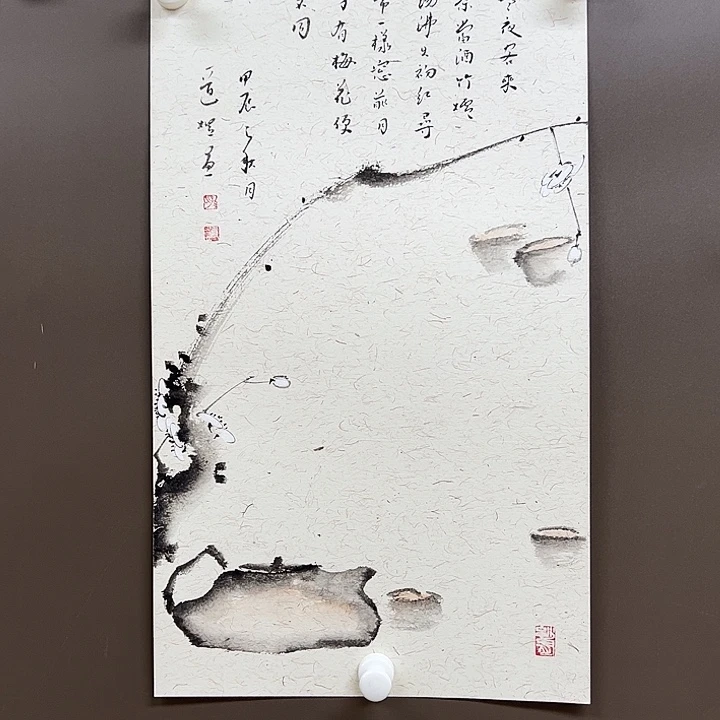 夜客來
茶當酒竹爐
湯沸火初紅尋
常一樣窓前月
才有梅花便
不同
甲辰之秋月
一道